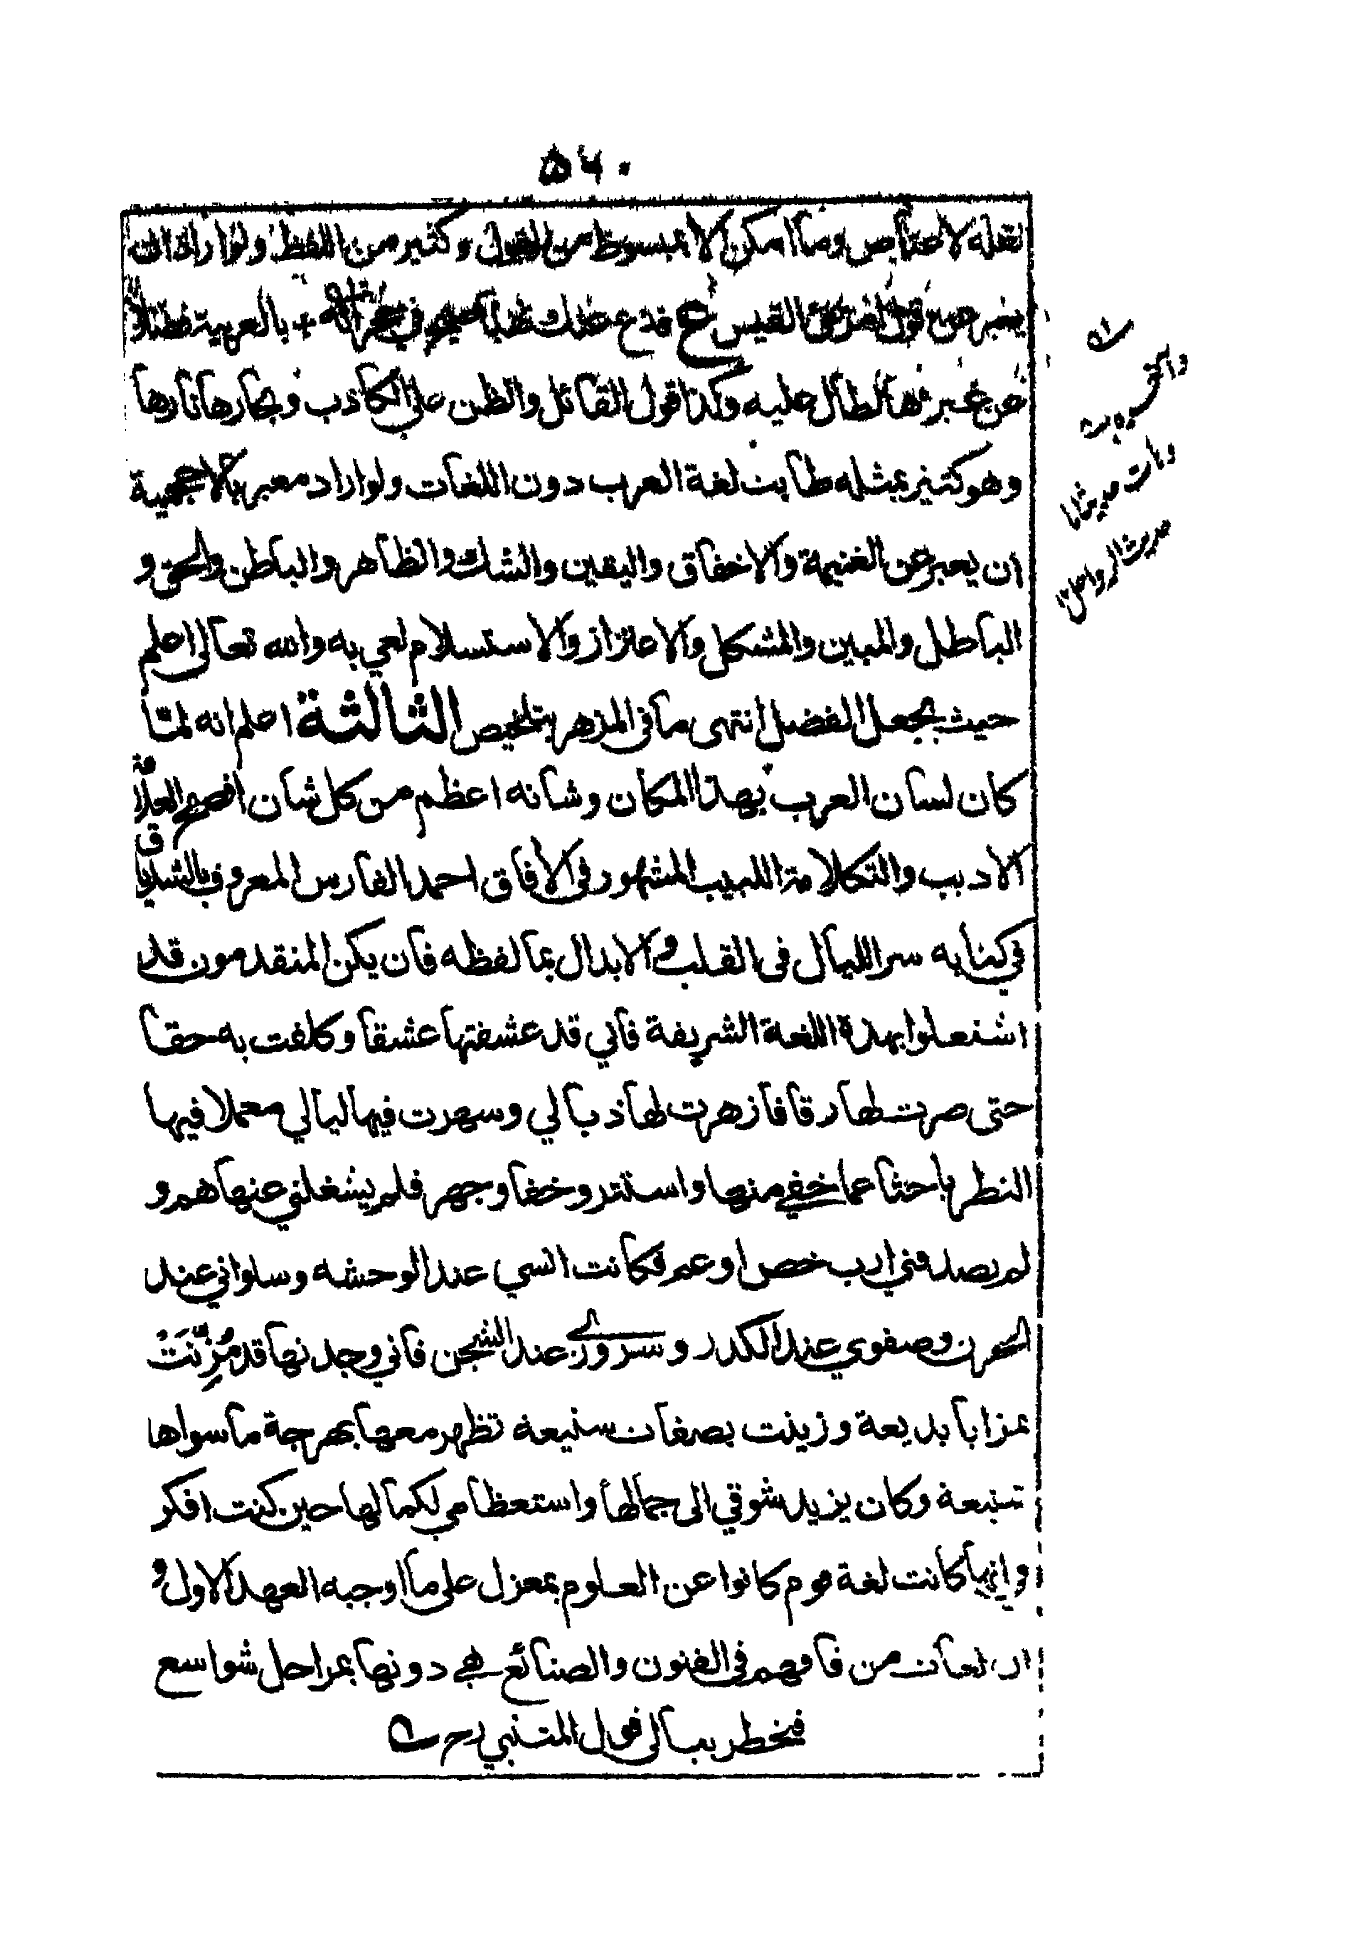 ٥٦٠
نقله لاعتاص وما امكن الا بمبسوط من القول وكثير من اللفظ ولو اراد ان
يعبر عن قول امرئ القيس ع فدع عنك نهبا صيح في حجراته + بالعربية فضلا
عن غيرها لطال عليه وكذا قول القائل والظن على الكاذب وبخارها نارها
وهو كثير بمثله طالت لغة العرب دون اللغات ولو اراد معبر بالاعجمية
ان يعبر عن الغنيمة والاخفاق واليقين والشك والظاهر والباطن والحق و
الباطل والمبين والمشكل والاعتزاز والاستسلام لعي به والله تعالى اعلم
حيث يجعل الفضل انتهى ما في المزهر بتلخيص الثالثة اعلم انه لما
كان لسان العرب بهذا المكان وشانه اعظم من كل شان افصح العلامة
الاديب والتكلامة اللبيب المشهور في الافاق احمد الفارس المعروف بالشدياق
في كتابه سر الليال في القلب والابدال بما لفظه فان يكن المتقدمون قد
اشتغلوا بهذة اللغة الشريفة فاني قد عشقتها عشقا وكلفت به حقا
حتى صرت لها رقا فازهرت لها ذبالي وسهرت فيها ليالي معملا فيها
النظر باحثا عما خفي منها واستتر وخفا وجهر فلم يشغلني عنها هم و
لم يصدفني ارب خص او عم فكانت انسي عند الوحشه وسلواني عند
الحزن وصفوي عند الكدر وسروري عند الشجن فاني وجدتها قد مزنت
بمزايا بديعة وزينت بصفات سنيعه تظهر معها بهرجة ما سواها
شنيعة وكان يزيد شوقي الى جمالها واستعظامي لكمالها حين كنت افكر
وانها كانت لغة قوم كانوا عن العلوم بمعزل على ما اوجبه العهد الاول و
ان لغات من فاقهم في الفنون والصنائع هي دونها بمراحل شواسع
فيخطر ببالي قول المتنبي رح